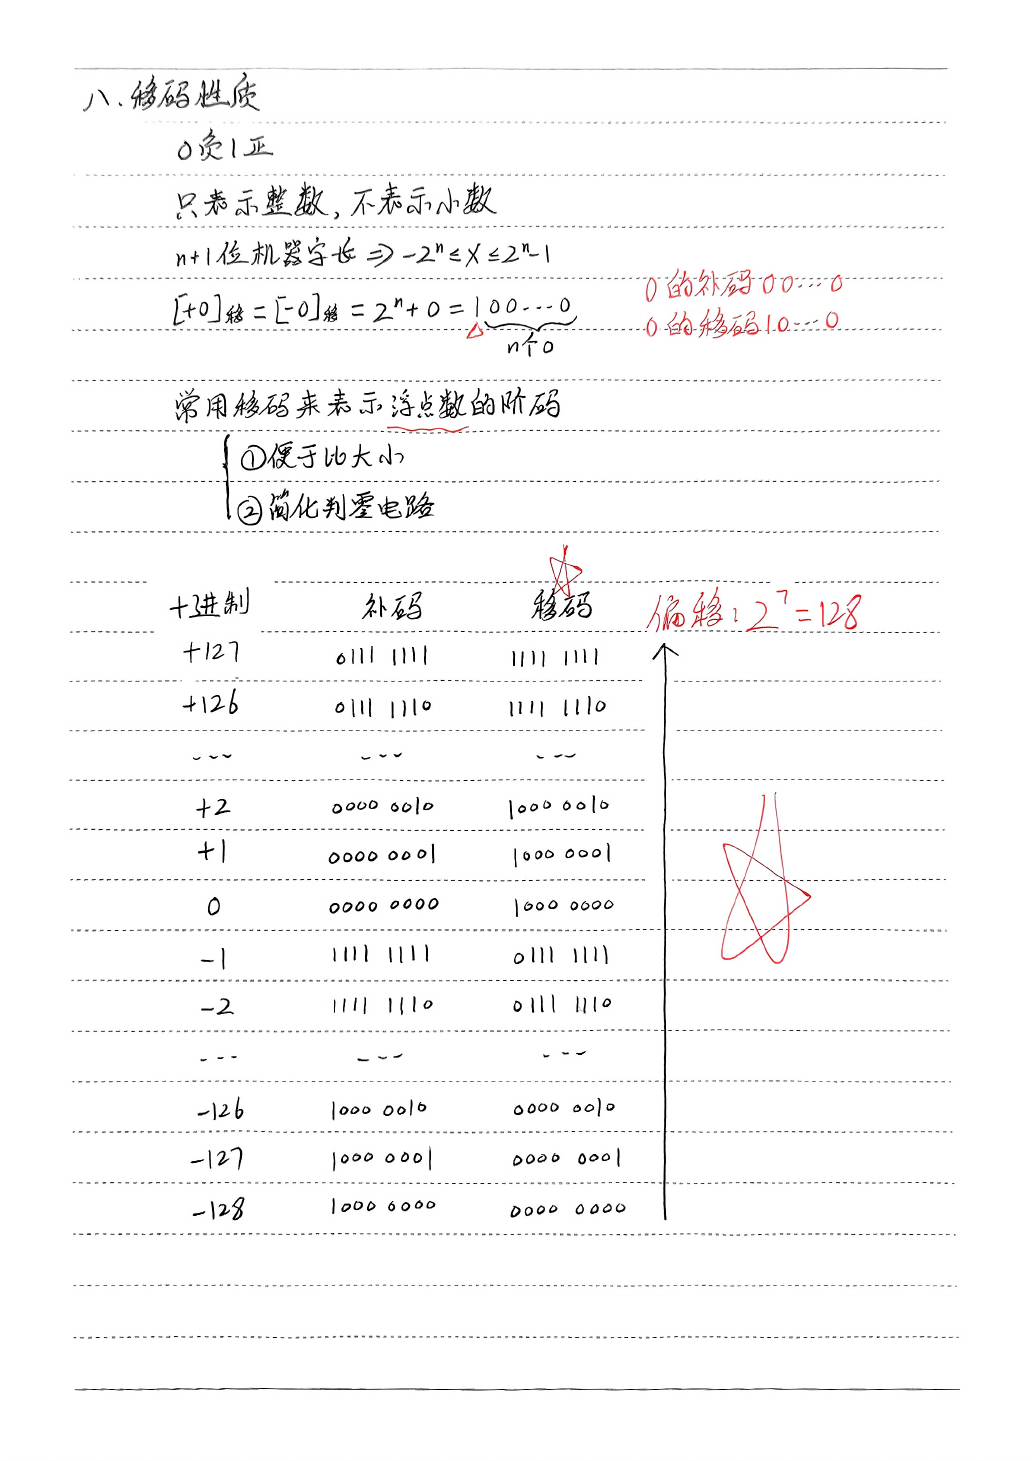 八、移码性质
0负1正
只表示整数,不表示小数
n+1位机器字长 ⇒ -2ⁿ ≤ X ≤ 2ⁿ-1
0的补码 00···0
[+0]移 = [-0]移 = 2ⁿ+0 = 100···0
0的移码10···0
n个0
常用移码来表示浮点数的阶码
①便于比大小
②简化判零电路
十进制 补码 移码 偏移:2⁷=128
+127 0111 1111 1111 1111
+126 0111 1110 1111 1110
--- --- ---
+2 0000 0010 1000 0010
+1 0000 0001 1000 0001
0 0000 0000 1000 0000
-1 1111 1111 0111 1111
-2 1111 1110 0111 1110
--- --- ---
-126 1000 0010 0000 0010
-127 1000 0001 0000 0001
-128 1000 0000 0000 0000